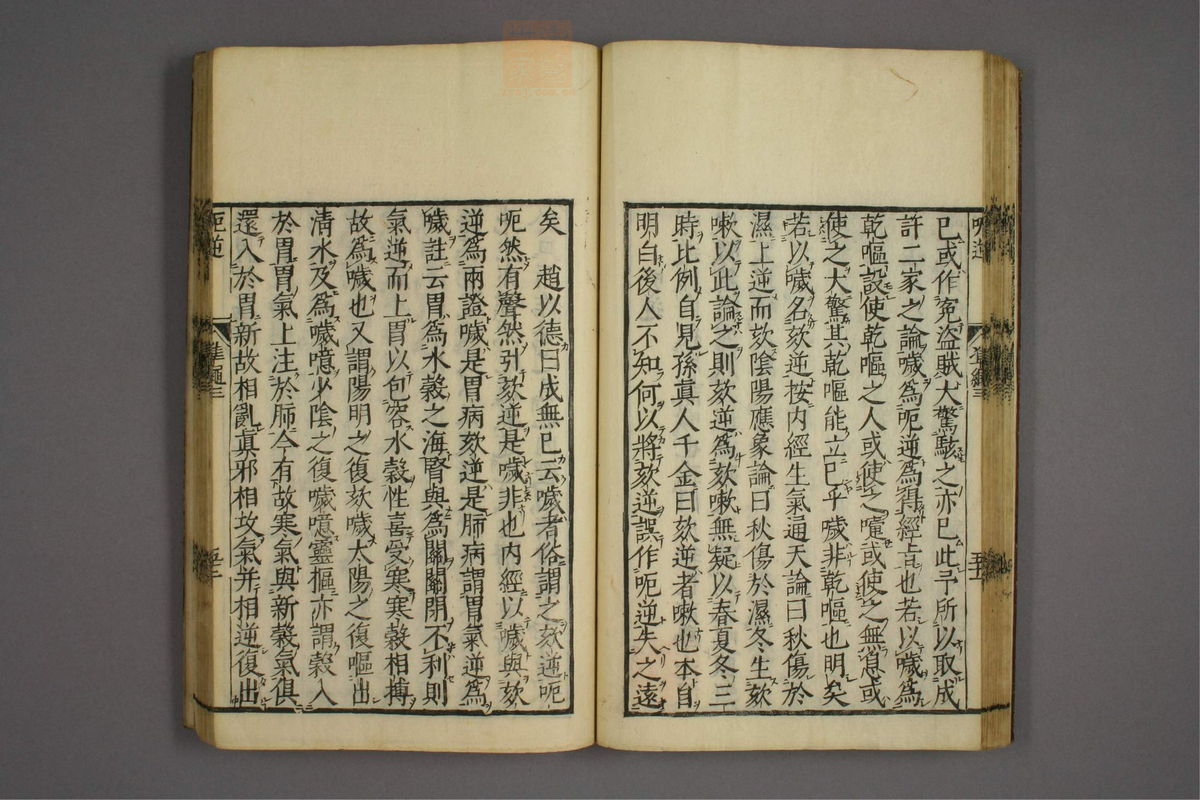 已或作冤盜賊大驚駭之亦已此予所以取成
許二家之論噦爲呃逆爲得經旨也若以噦爲
乾嘔設使乾嘔之人或使之嚏或使之無息或
使之大驚其乾嘔能立已乎噦非乾嘔也明矣
若以噦名欬逆按内經生氣通天論曰秋傷於
濕上逆而欬陰陽應象論曰秋傷於濕冬生欬
嗽以此論之則欬逆爲欬嗽無疑以春夏冬三
時比例自見孫眞人千金曰欬逆者嗽也本自
明白後人不知何以將欬逆誤作呃逆失之遠
矣　趙以德曰成無已云噦者俗謂之欬逆呃
呃然有聲然引欬逆是噦非也内經以噦與欬
逆爲兩證噦是胃病欬逆是肺病謂胃氣逆爲
噦註云胃爲水穀之海腎與爲關關閉不利則
氣逆而上胃以包容水穀性喜受寒寒穀相搏
故爲噦也又謂陽明之復欬噦太陽之復嘔出
清水及爲噦噫少陰之復噦噫靈樞亦謂穀入
於胃胃氣上注於肺今有故寒氣與新穀氣俱
還入於胃新故相亂眞邪相攻氣并相逆復出
呃逆
五二